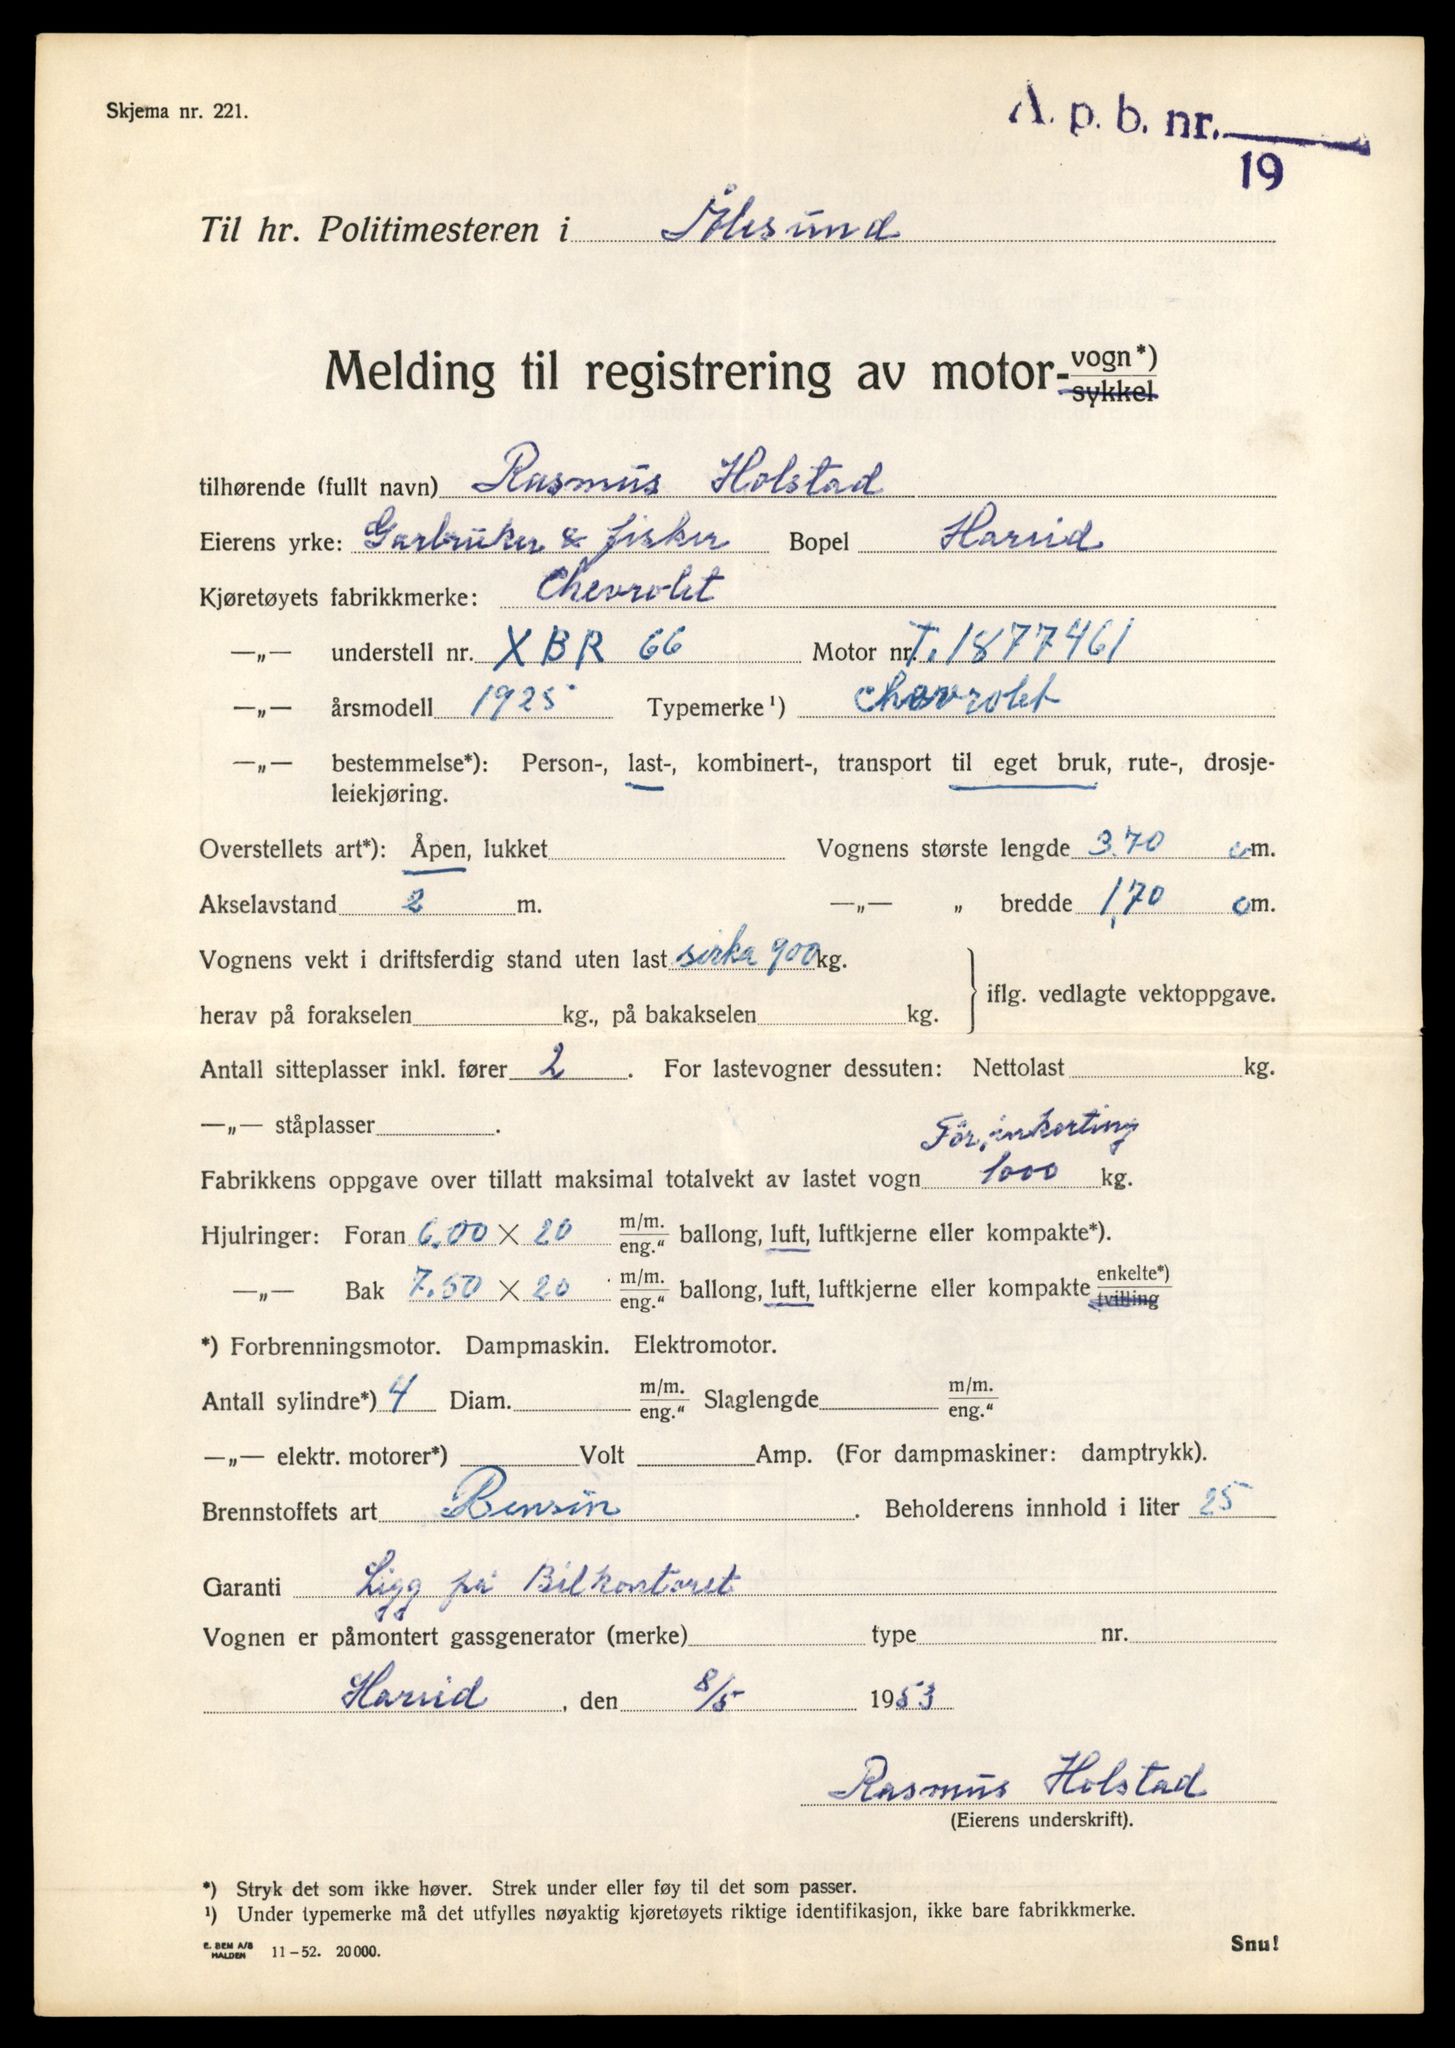 Skjema nr. 221.
A. p. b. nr.
19
Til hr. Politimesteren i Ålesund
Melding til registrering av motor- vogn*)
sykkel
tilhørende (fullt navn) Rasmus Holstad
Eierens yrke: Garbruker & fisker Bopel Hareid
Kjøretøyets fabrikkmerke: Chevrolet
—„— understell nr. XBR 66 Motor nr. T.1877461
—„— årsmodell 1925 Typemerke¹) Chevrolet
—„— bestemmelse*): Person-, last-, kombinert-, transport til eget bruk, rute-, drosje-
leiekjøring.
Overstellets art*): Åpen, lukket Vognens største lengde 3.70 cm.
Akselavstand 2 m. —„— „ bredde 1,70 cm.
Vognens vekt i driftsferdig stand uten last sirka 900 kg.
herav på forakselen kg., på bakakselen kg. iflg. vedlagte vektoppgave.
Antall sitteplasser inkl. fører 2 . For lastevogner dessuten: Nettolast kg.
—„— ståplasser .
För inkorting
Fabrikkens oppgave over tillatt maksimal totalvekt av lastet vogn 1000 kg.
Hjulringer: Foran 6.00 × 20 m/m. eng.“ ballong, luft, luftkjerne eller kompakte*).
—„— Bak 7.50 × 20 m/m. eng.“ ballong, luft, luftkjerne eller kompakte enkelte*) tvilling
*) Forbrenningsmotor. Dampmaskin. Elektromotor.
Antall sylindre*) 4 Diam. m/m. eng.“ Slaglengde m/m. eng.“
—„— elektr. motorer*) Volt Amp. (For dampmaskiner: damptrykk).
Brennstoffets art Bensin . Beholderens innhold i liter 25
Garanti Ligg på Bilkontoret
Vognen er påmontert gassgenerator (merke) type nr.
Hareid , den 8/5 1953
Rasmus Holstad
(Eierens underskrift).
*) Stryk det som ikke høver. Strek under eller føy til det som passer.
¹) Under typemerke må det utfylles nøyaktig kjøretøyets riktige identifikasjon, ikke bare fabrikkmerke.
E. BEM A/S
HALDEN 11-52. 20000.
Snu!